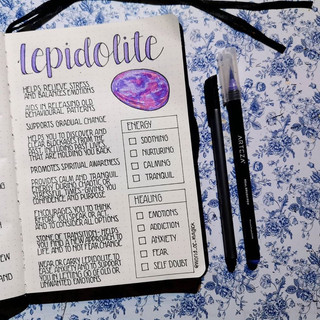 lepidolite
HELPS RELIEVE STRESS
AND BALANCES EMOTIONS
AIDS IN RELEASING OLD
BEHAVIOURAL PATTERNS
SUPPORTS GRADUAL CHANGE
HELPS YOU TO DISCOVER AND
CLEAR BLOCKAGES FROM THE
PAST INCLUDING BELIEFS
THAT ARE HOLDING YOU BACK
PROMOTES SPIRITUAL AWARENESS
PROVIDES CALM AND TRANQUIL
ENERGY DURING CHAOTIC OR
STRESSFUL TIMES, GIVING YOU
CONFIDENCE AND PURPOSE
ENCOURAGES YOU TO THINK
BEFORE YOU SPEAK OR ACT,
AND TO CONSIDER ALL OPTIONS
STONE OF TRANSITION: HELPS
YOU FIND A NEW APPROACH TO
LIFE AND TO NOT FEAR CHANGE
WEAR OR CARRY LEPIDOLITE TO
EASE ANXIETY AND TO SUPPORT
YOU IN LETTING GO OF OLD OR
UNWANTED EMOTIONS
ENERGY
SOOTHING
NURTURING
CALMING
TRANQUIL
HEALING
EMOTIONS
ADDICTION
ANXIETY
FEAR
SELF DOUBT
ARTEZA